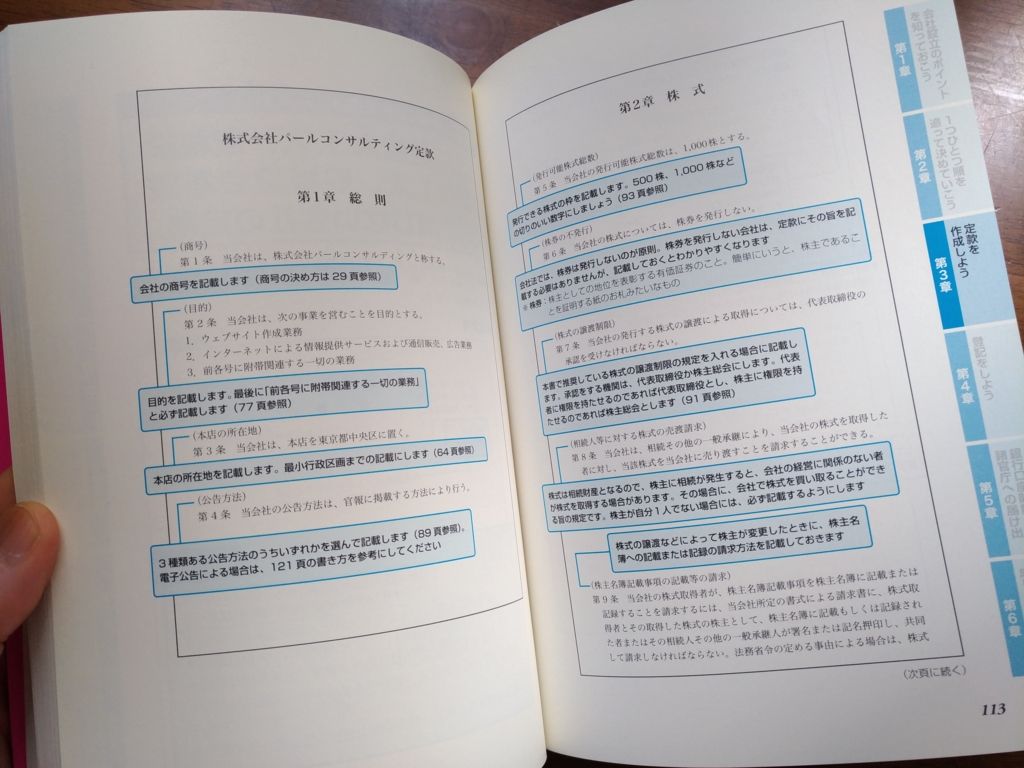 株式会社パールコンサルティング定款
第1章 総 則
(商号)
第1条 当会社は、株式会社パールコンサルティングと称する。
会社の商号を記載します(商号の決め方は29頁参照)
(目的)
第2条 当会社は、次の事業を営むことを目的とする。
1. ウェブサイト作成業務
2. インターネットによる情報提供サービスおよび通信販売、広告業務
3. 前各号に附帯関連する一切の業務
目的を記載します。最後に「前各号に附帯関連する一切の業務」
と必ず記載します(77頁参照)
(本店の所在地)
第3条 当会社は、本店を東京都中央区に置く。
本店の所在地を記載します。最小行政区画までの記載にします(64頁参照)
(公告方法)
第4条 当会社の公告方法は、官報に掲載する方法により行う。
3種類ある公告方法のうちいずれかを選んで記載します(89頁参照)。
電子公告による場合は、121頁の書き方を参考にしてください
第2章 株 式
(発行可能株式総数)
第5条 当会社の発行可能株式総数は、1,000株とする。
発行できる株式の枠を記載します。500株、1,000株など
の切りのいい数字にしましょう(93頁参照)
(株券の不発行)
第6条 当会社の株式については、株券を発行しない。
会社法では、株券は発行しないのが原則。株券を発行しない会社は、定款にその旨を記
載する必要はありませんが、記載しておくとわかりやすくなります
※株券:株主としての地位を表彰する有価証券のこと。簡単にいうと、株主であるこ
とを証明する紙のお札みたいなもの
(株式の譲渡制限)
第7条 当会社の発行する株式の譲渡による取得については、代表取締役の
承認を受けなければならない。
本書で推奨している株式の譲渡制限の規定を入れる場合に記載し
ます。承認をする機関は、代表取締役か株主総会にします。代表
者に権限を持たせるのであれば代表取締役とし、株主に権限を持
たせるのであれば株主総会とします(91頁参照)
(相続人等に対する株式の売渡請求)
第8条 当会社は、相続その他の一般承継により、当会社の株式を取得した
者に対し、当該株式を当会社に売り渡すことを請求することができる。
株式は相続財産となるので、株主に相続が発生すると、会社の経営に関係のない者
が株式を取得する場合があります。その場合に、会社で株式を買い取ることができ
る旨の規定です。株主が自分1人でない場合には、必ず記載するようにします
株式の譲渡などによって株主が変更したときに、株主名
簿への記載または記録の請求方法を記載しておきます
(株主名簿記載事項の記載等の請求)
第9条 当会社の株式取得者が、株主名簿記載事項を株主名簿に記載または
記録することを請求するには、当会社所定の書式による請求書に、株式取
得者とその取得した株式の株主として、株主名簿に記載もしくは記録され
た者またはその相続人その他の一般承継人が署名または記名押印し、共同
して請求しなければならない。法務省令の定める事由による場合は、株式
(次頁に続く)
113
第1章
会社設立のポイント
を知っておこう
第2章
1つひとつ順を
追って決めていこう
第3章
定款を
作成しよう
第4章
登記をしよう
第5章
諸官庁への届け出
第6章